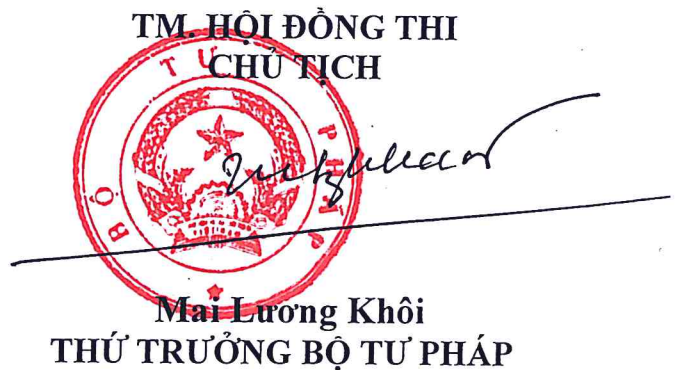 TM. HỘI ĐỒNG THI
CHỦ TỊCH
BỘ TƯ PHÁP
Mai Lương Khôi
THỨ TRƯỞNG BỘ TƯ PHÁP